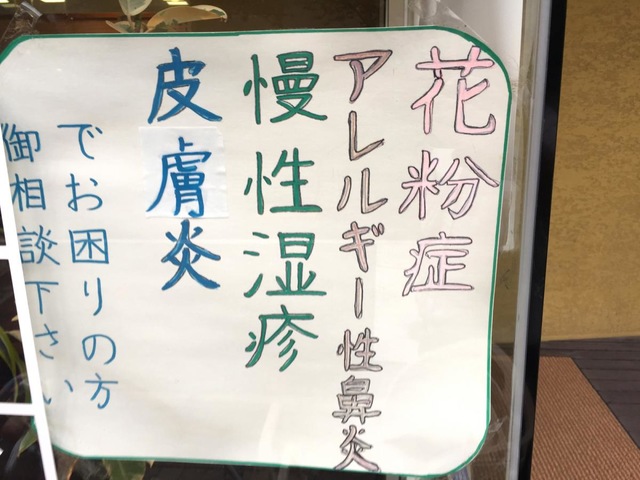 花粉症
アレルギー性鼻炎
慢性湿疹
皮膚炎
でお困りの方
御相談下さい